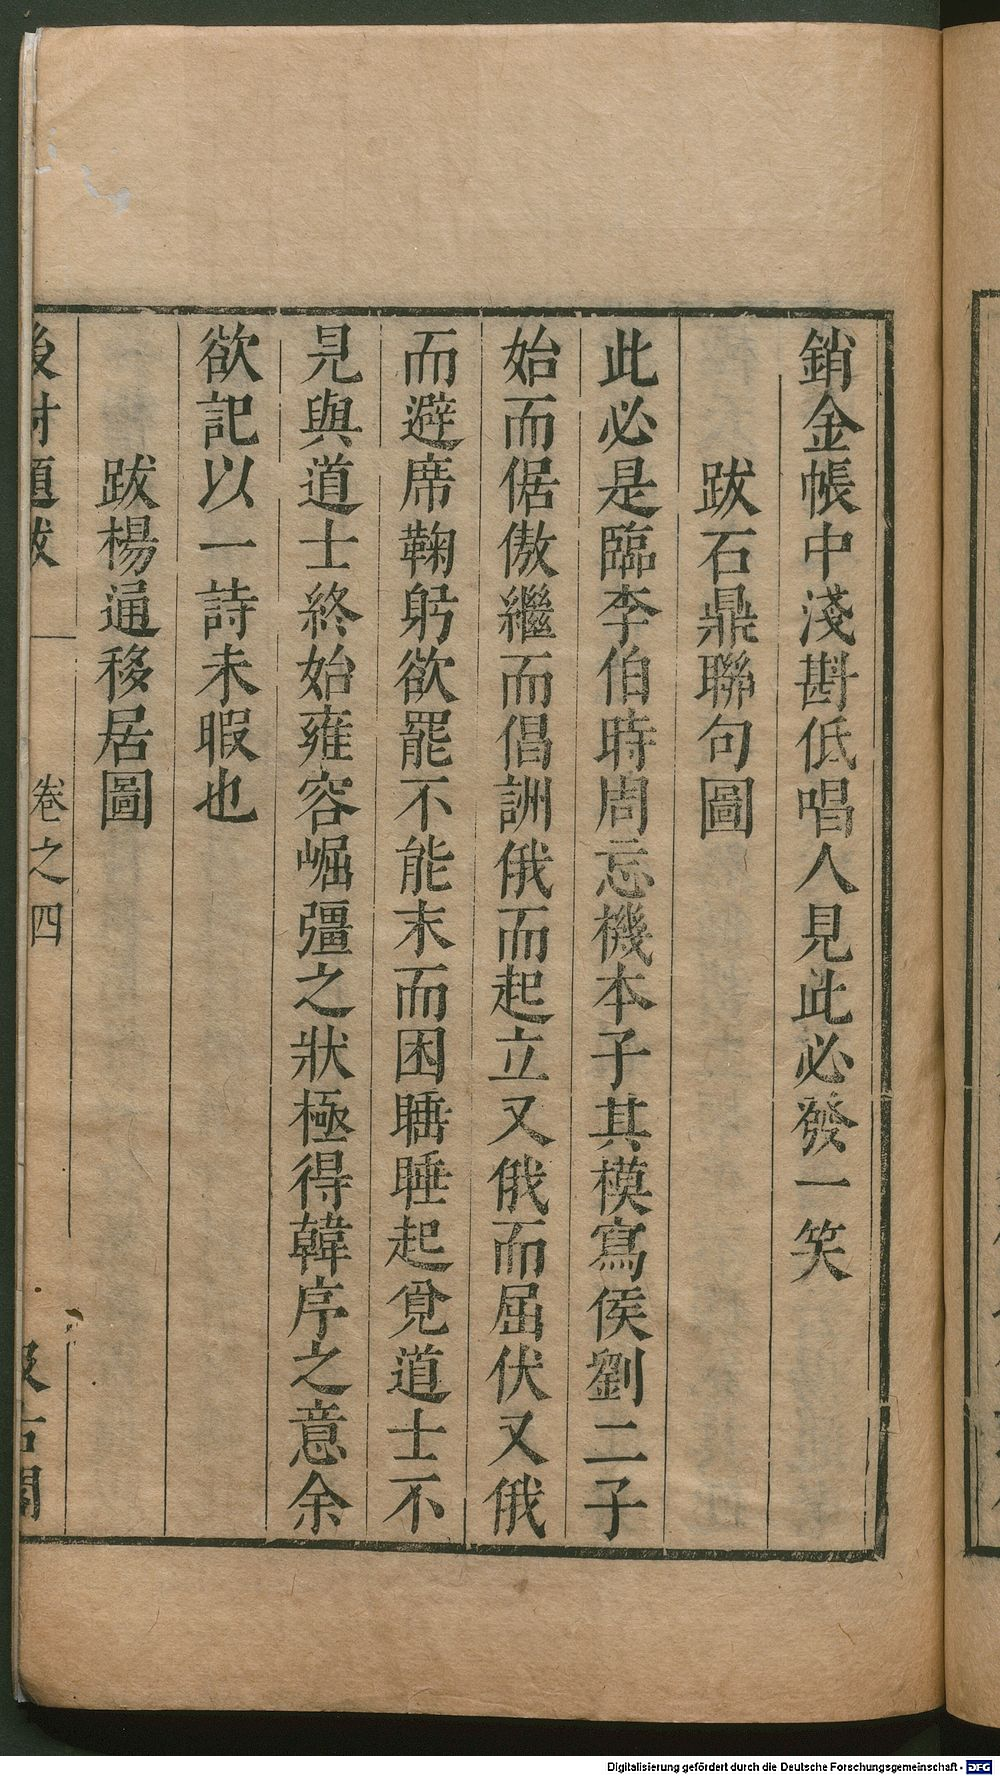 銷金帳中淺斟低唱人見此必發一笑
跋石鼎聯句圖
此必是臨李伯時周忘機本子其模寫侯劉二子
始而倨傲繼而倡詶俄而起立又俄而屈伏又俄
而避席鞠躬欲罷不能末而困睡睡起覓道士不
見與道士終始雍容崛彊之狀極得韓序之意余
欲記以一詩未暇也
跋楊通移居圖
後村題跋
卷之四
汲古閣
Digitalisierung gefördert durch die Deutsche Forschungsgemeinschaft - DFG